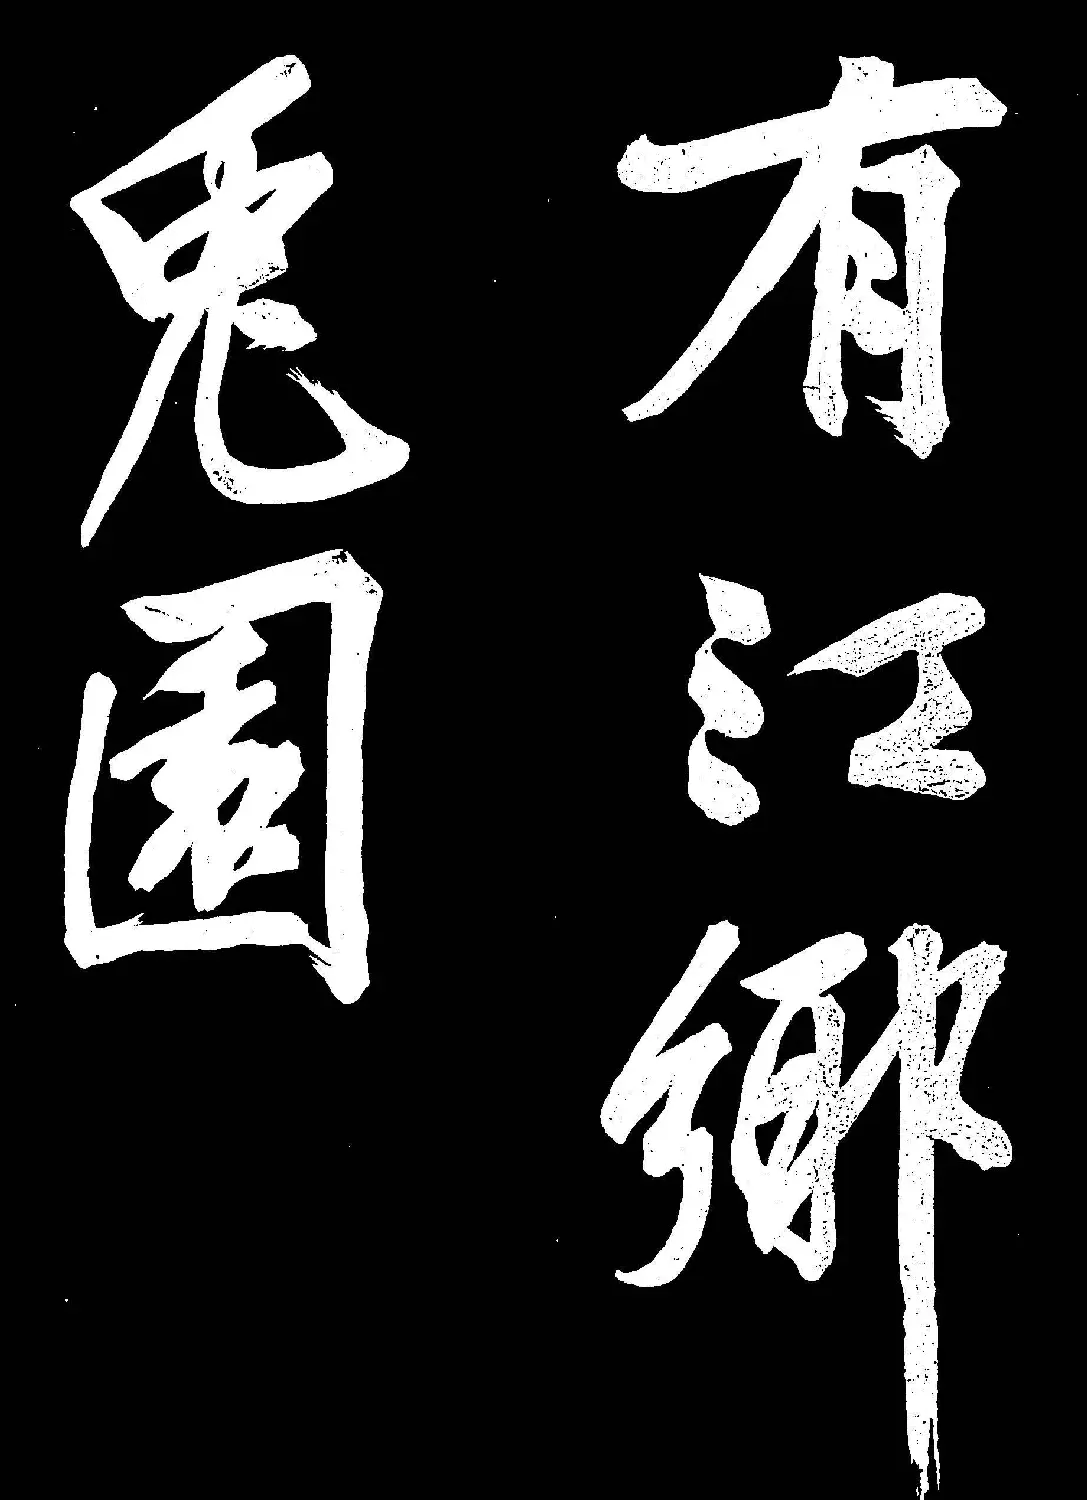 有江鄉
兎園